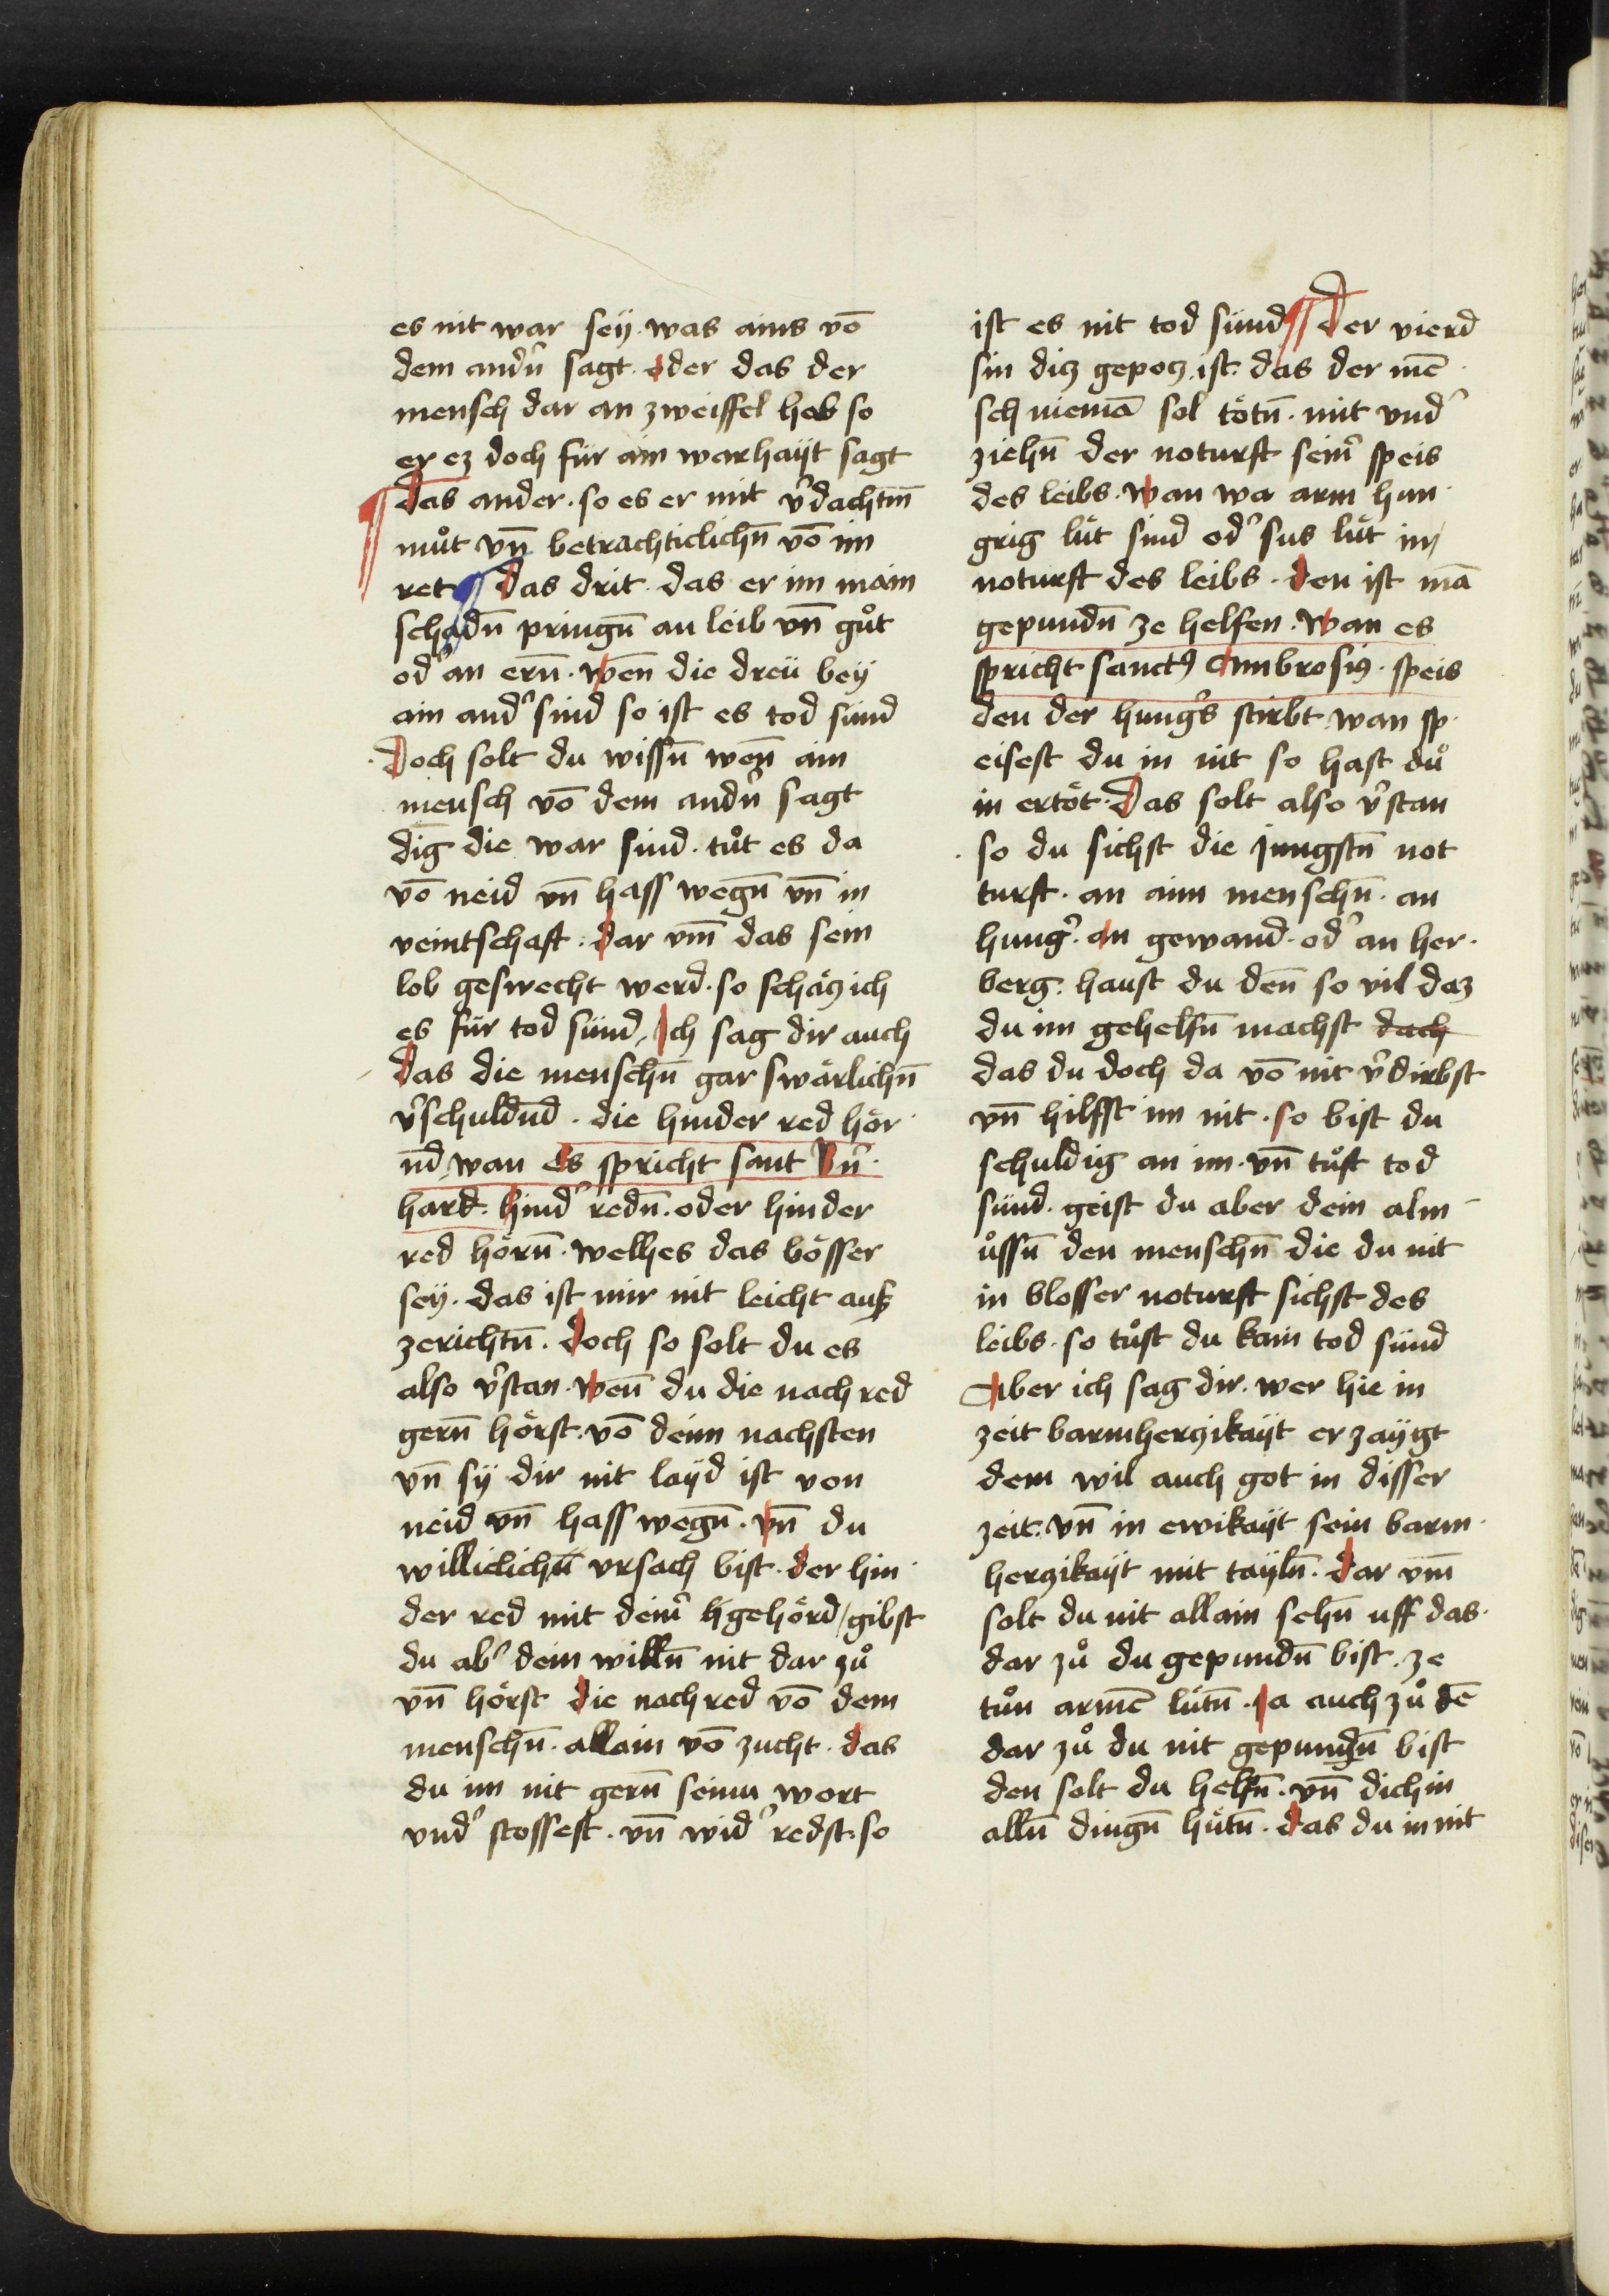 es nit war seÿ · was ains vō
dem andn̄ sagt · oder das der
mensch dar an zweiffel hab so
er ez doch für ain warhaÿt sagt
¶ Das ander · so es er mit v̄dachtm̄
muͦt vn̄ betrachticlichn̄ vō im
ret ¶ Das drit · das er im main
schadn̄ pringn̄ an leib vn̄ guͦt
od̓ an ern̄ · wen̄ die dreü beÿ
ain and̓ sind so ist es tod sünd
Doch solt du wissn̄ wen̄ ain
mensch vō dem andn̄ sagt
dig̅ die war sind · tuͦt es da
vō neid vn̄ hass wegn̄ vn̄ in
veintschaft · dar vm̄ das sein
lob geswecht werd · so schäcz ich
es für tod sünd / Ich sag dir auch
das die menschn̄ gar swärlichn̄
v̓schuldn̄d · die hinder red hör ·
nd̄ / wan Es spricht sant Bn̓ ·
hard · hind̓ redn̄ · oder hinder
red hörn̄ · welhes das bösser
seÿ · das ist mir nit leicht ausz
zerichtn̄ · doch so solt du es
also v̓stan · wen̄ du die nach red
gern̄ hörst · vō deim nachsten
vn̄ sÿ dir nit laÿd ist von
neid vn̄ hass wegn̄ · vn̄ du
williclichn̄ vrsach bist · der hin ·
der red mit deim̓ gehörd / gibst
du ab̓ dein willn̄ nit dar zuͦ
vn̄ hörst die nach red vō dem
menschn̄ · allain vō zucht · das
du im nit gern̄ seinu wort
vnd̓ stossest · vn̄ wid̓ redst · so
ist es nit tod sünd ¶ Der vierd
sin dicz gepocz · ist · das der mē ·
sch niemā sol tötn̄ · mit vnd̓
ziehn̄ der noturft seim̓ speis
des leibs · wan wa arm hun ·
grig lüt sind od̓ sus lüt in /
noturft des leibs · den ist mā
gepundn̄ ze helfen · wan es
spricht sanctꝯ Ambrosiꝯ · speis
den der hung̓s stirbt · wan sp ·
eisest du in nit so hast duͦ
in ertöt · Das solt also v̓stan
· so du sichst die jungstn̄ not
turft · an aim menschn̄ · an
hung̓ · an gewand · od̓ an her ·
berg · haust du den̄ so vil daz
du im gehelfn̄ machst dach
das du doch da vō nit v̓dirbst
vn̄ hilfst im nit · so bist du
schuldig an im · vn̄ tuͦst tod
sünd · geist du aber dein alm -
uͦssn̄ den menschn̄ die du nit
in blosser noturft sichst des
leibs · so tuͦst du kain tod sünd
Aber ich sag dir · wer hie in
zeit barmherczikaÿt er zaÿgt
dem wil auch got in disser
zeit · vn̄ in ewikaÿt sein barm ·
herczikaÿt mit taÿln̄ · dar vm̄
solt du nit allain sehn̄ uff das ·
dar zuͦ du gepundn̄ bist · ze
tuͦn armē lütn̄ · Ja auch zuͦ dē
dar zuͦ du nit gepundn̄ bist
den solt du helfn̄ · vn̄ dich in
alln̄ dingn̄ hütn̄ · das du in nit